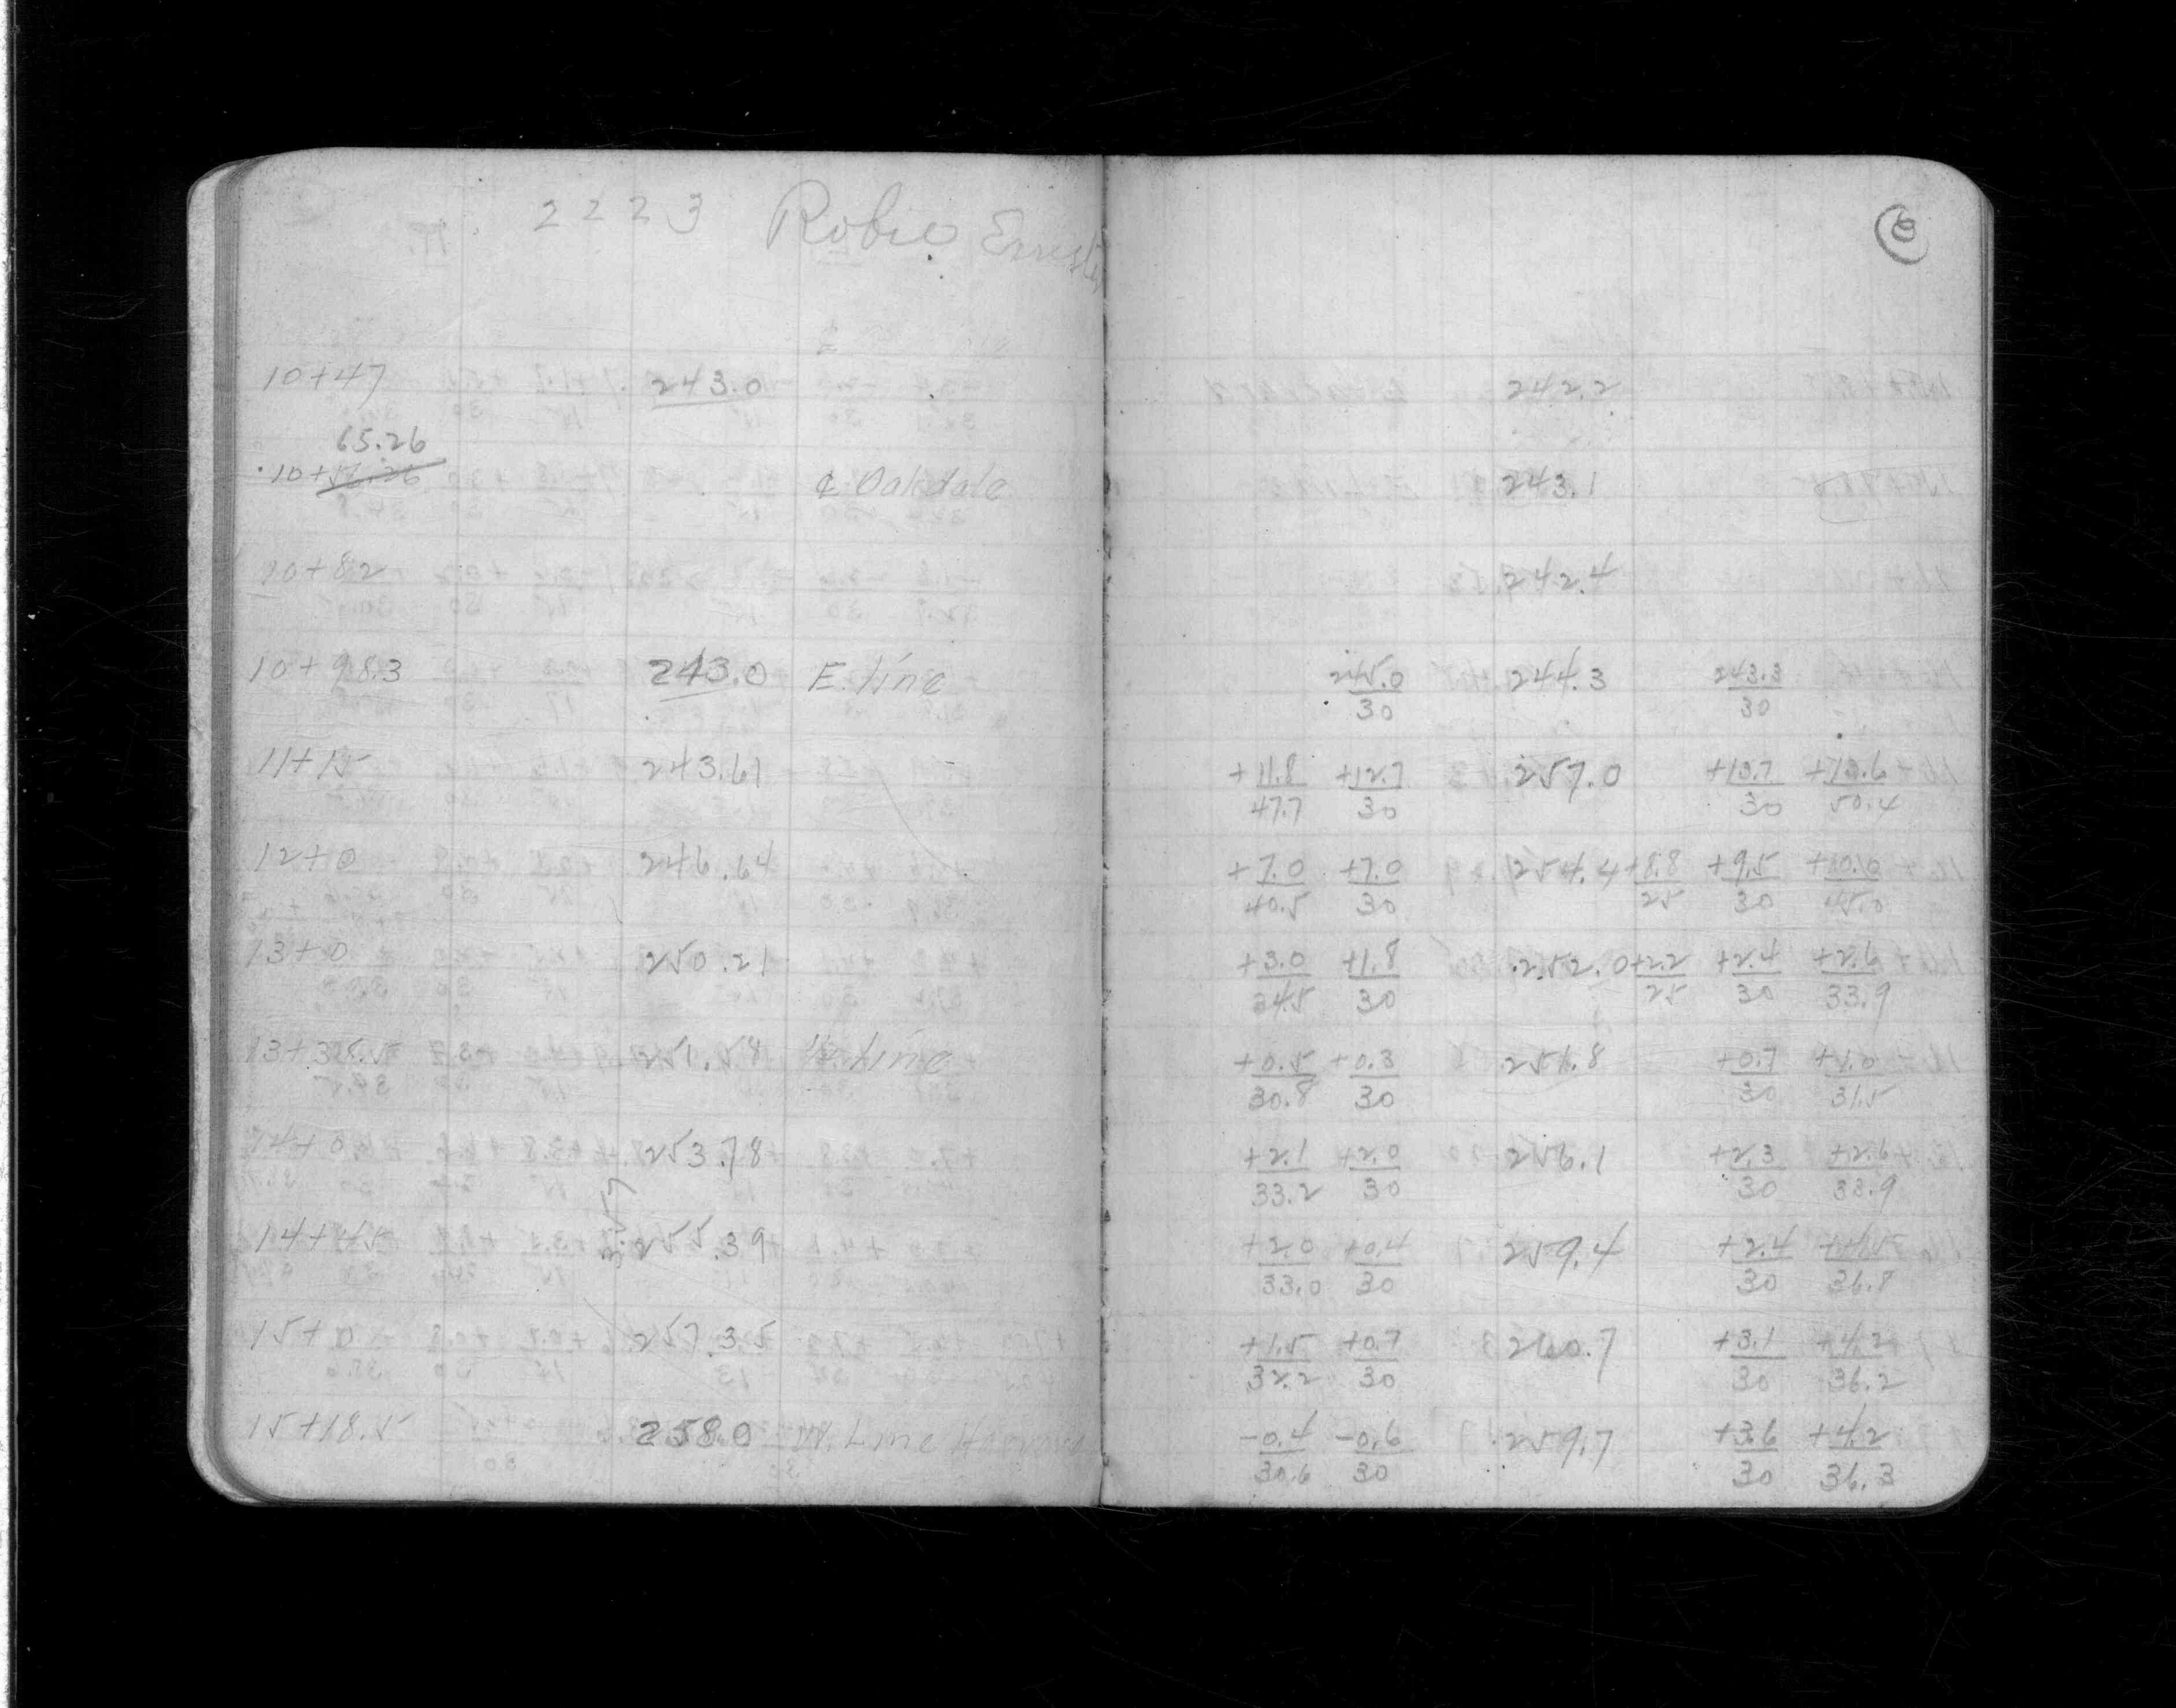 2223 Robie
6
10+47 243.0 242.2
65.26
10+56.26 ₵ Oakdale 243.1
10+82 242.4
10+98.3 243.0 E. line 245.0/30 244.3 243.3/30
11+15 243.61 +11.8/47.7 +12.7/30 257.0 +13.7/30 +13.6/50.4
12+0 246.64 +7.0/40.5 +7.0/30 254.4 +8.8/25 +9.5/30 +10.0/45.0
13+0 250.21 +3.0/34.5 +1.8/30 252.0 +2.2/25 +2.4/30 +2.6/33.9
13+38.5 251.58 W. line +0.5/30.8 +0.3/30 251.8 +0.7/30 +1.0/31.5
14+0 253.78 +2.1/33.2 +2.0/30 256.1 +2.3/30 +2.6/33.9
14+45 255.39 +2.0/33.0 +0.4/30 259.4 +2.4/30 36.8
15+0 257.35 +1.5/32.2 +0.7/30 260.7 +3.1/30 +4.2/36.2
15+18.5 258.0 W. Line -0.4/30.6 -0.6/30 259.7 +3.6/30 +4.2/36.3